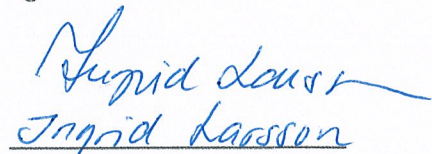 Ingrid Larsson
Ingrid Larsson